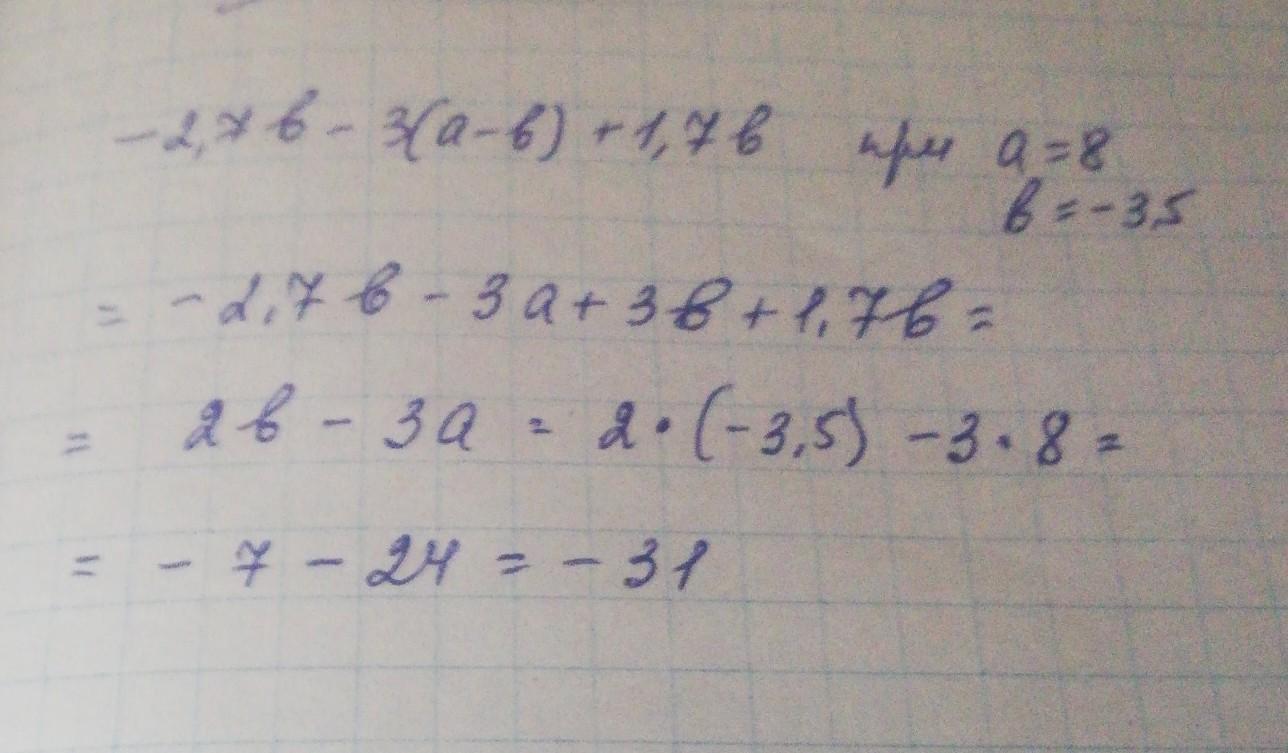 -2,7в - 3(а-в) + 1,7в при а=8
в=-3,5
= -2,7в - 3а + 3в + 1,7в =
= 2в - 3а = 2·(-3,5) - 3·8 =
= -7 - 24 = -31